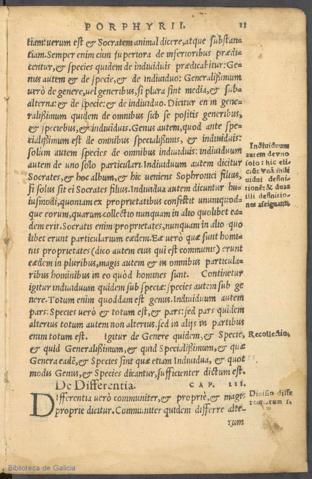 PORPHYRII. 11
tiam: uerum est & Socratem animal dicere, atque substan-
tiam. Semper enim cùm superiora de inferioribus prædi-
centur, & species quidem de indiuiduis prædicabitur: Ge-
nus autem & de specie, & de indiuiduo: Generalissimum
uerò de genere, uel generibus, si plura sint media, & sub-
alterna: & de specie: & de indiuiduo. Dicitur enim ge-
neralissimum quidem de omnibus sub se positis generibus,
& speciebus, & indiuiduis. Genus autem, quod ante spe-
cialissimum est de omnibus specialissimis, & indiuiduis:
solum autem species de omnibus indiuiduis: indiuiduum
autem de uno solo particulari. Indiuiduum autem dicitur
Socrates, & hoc album, & hic ueniens Sophronici filius,
si solus sit ei Socrates filius. Indiuidua autem dicuntur hu-
iusmodi, quoniam ex proprietatibus consistit unumquod-
que eorum, quarum collectio nunquam in alio quolibet ea-
dem erit. Socratis enim proprietates, nunquam in alio quo
libet erunt particularium eædem. Eæ uerò quæ sunt homi-
nis proprietates (dico autem eius qui est communis) erunt
eædem in pluribus, magis autem & in omnibus particula-
ribus hominibus in eo quòd homines sunt. Continetur
igitur indiuiduum quidem sub specie: species autem sub ge
nere. Totum enim quoddam est genus. Indiuiduum autem
pars: Species uerò & totum est, & pars: sed pars quidem
alterius totum autem non alterius, sed in alijs in partibus
enim totum est. Igitur de Genere quidem, & Specie,
& quid Generalissimum, & quid Specialissimum, & quæ
Genera eadē, & Species sint quæ etiam Indiuidua, & quot
modis Genus, & Species dicantur, sufficienter dictum est.
De Differentia. CAP. III.
Differentia uerò communiter, & propriè, & magis
proprie dicitur. Communiter quidem differre alte-
rum
Indiuiduum
autem de vno
solo: hic eli-
definitio-
Recollectio,
Diuisio diffe
Biblioteca de Galicia